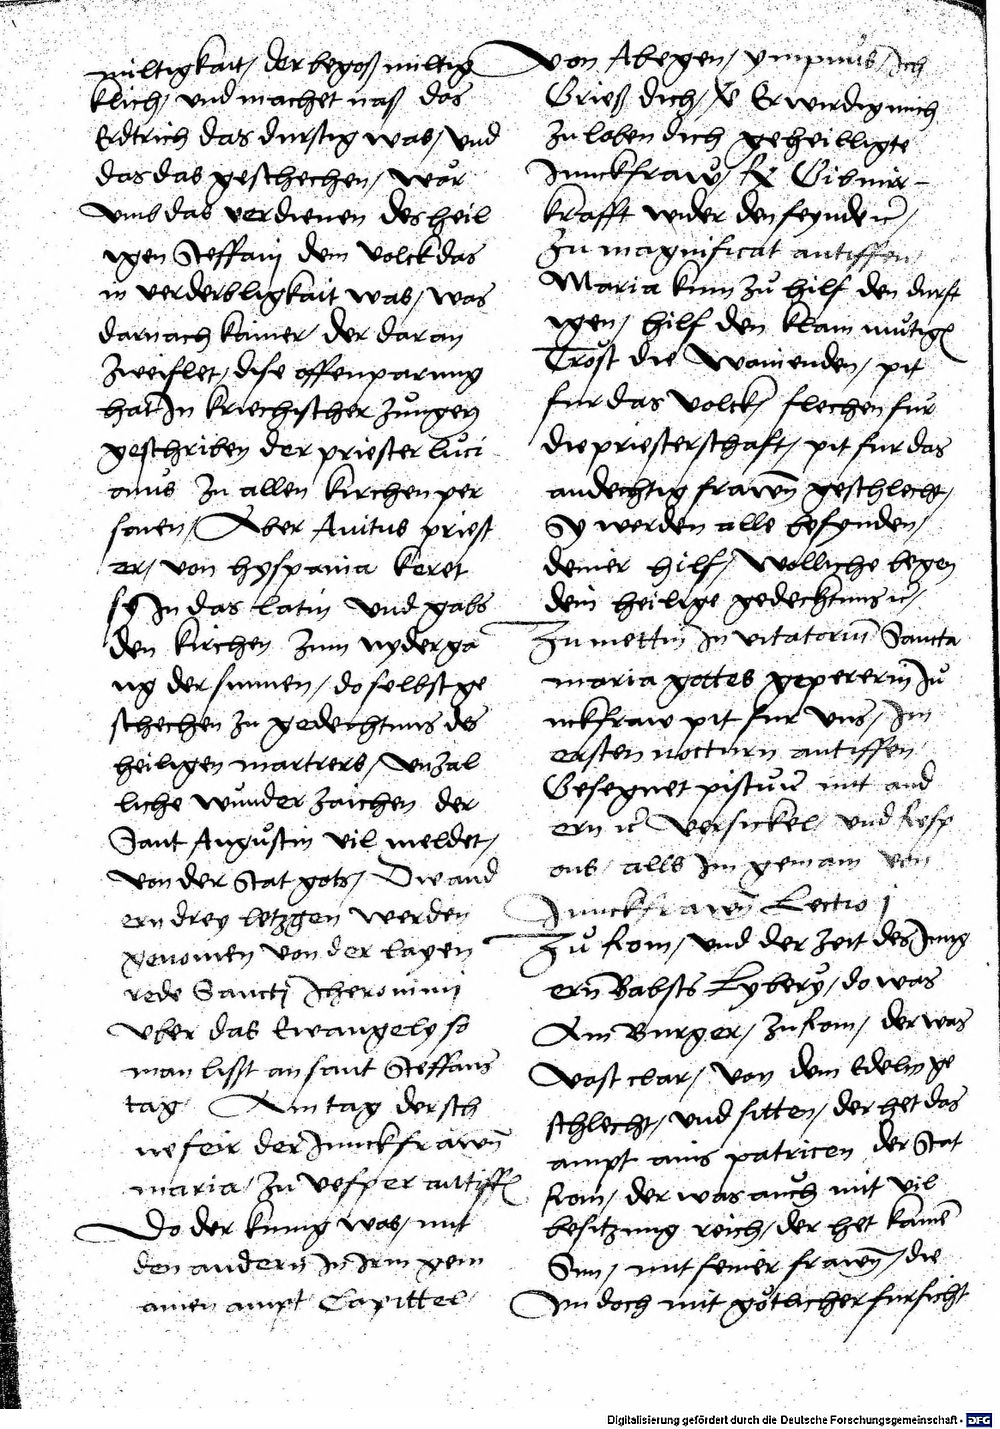 miltigkait / der begoß miltig
klich / und machet naß das
Erdtrich das durstig was / und
das das geschechen / wär
umb das verdienen des heil
igen Steffani dem volck das
in verderbligkait was / was
darnach kainer / der daran
zweiflet / dise offenparung
hat In kriechischer zůngen
geschriben der priester luci
anus zu allen kirchen per
sonen / Aber Avitus priest
er / von hyspania keret
sy In das latin und gabs
den kirchen zum nyderga
ng der sunnen / do selbst ge
schechen zu gedechtnus des
heiligen martrers / unzal
liche wunder zaichen der
Sant Augůstin vil meldet /
von der Stat gots / Die and
ern drey letzgen werden
genomen von der layen
rede Sancti Iheronimi
uber das Ewangely so
man lisst an sant Steffans
tag Am tag der sch
ne feir der Junckfrawn̄
maria / zu vesper antiff
Do der kunig was / mit
den andern In Irm gem
ainen ampt Capittel /
von Abegen / ympnus / Ich
Grieß dich / ℟ Er wirdig mich
zu loben dich geheilligte
Junckfraw / ℣ Gib mir
krafft wider den feynde ꝛc /
zu magnificat antiffen /
Maria kum zů hilf den durft
igen / hilf den klain můtigē
Tröst die wainenden / pit
fur das volck / flechen fur
die priesterschaft / pit fur das
andechtig frawn̄ geschlecht /
Sy werden alle befynden /
deiner hilf / wölliche begen
dein heilige gedechtnus ꝛc /
zu mettin In vitatoriū Sancta
maria gottes gepererin Jů
nckfraw pit fur uns / Im
ersten nocturn antiffen /
Gesegnet pistu ꝛc mit and
ern ꝛc versickel / und Resp
ons / alls Im gemain von
Junckfrawn̄ Lectio j
Zů Rom / und der zeit des Jung
ern̄ Babsts Lybery / do was
Ain Burger / zu Rom / der was
vast clar / von dem Edeln ge
schlecht / und sitten / der het das
ampt ains patricen der Stat
Rom / der was auch mit vil
besitzung reich / der het kainē
Sun / mit seiner frawn̄ / die
Im doch mit götlicher fursicht
Digitalisierung gefördert durch die Deutsche Forschungsgemeinschaft - DFG